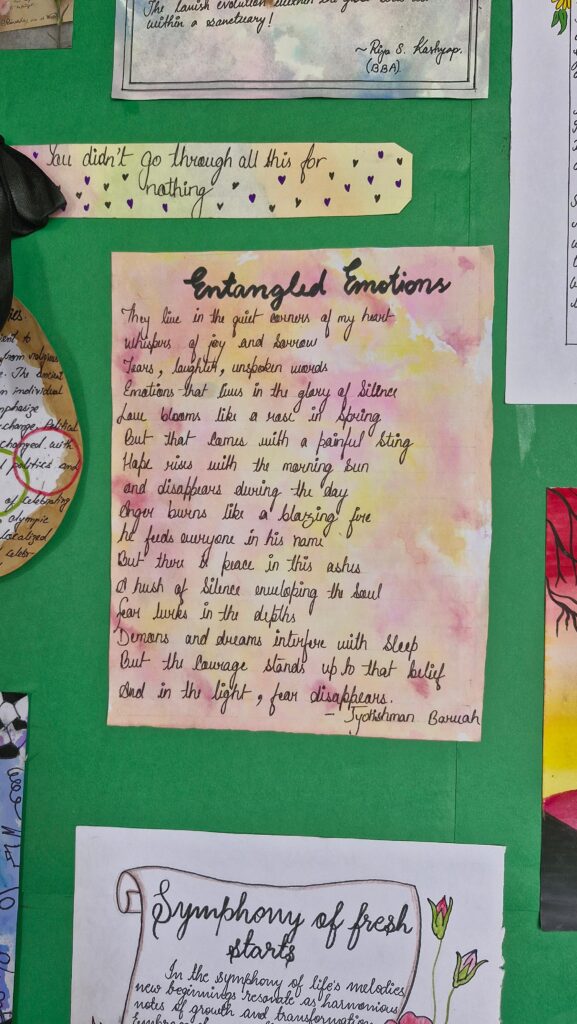 The lavish evolution within the
within a sanctuary!
~ Riya S. Kashyap.
(BBA).
You didn't go through all this for
nothing
Entangled Emotions
They live in the quiet corners of my heart
Whispers of joy and sorrow
Tears, laughter, unspoken words
Emotions that lives in the glory of Silence
Love blooms like a rose in Spring
But that comes with a painful Sting
Hope rises with the morning Sun
and disappears during the day
Anger burns like a blazing fire
he feeds everyone in his name
But there is peace in this ashes
A hush of Silence enveloping the Soul
Fear lurks in the depths
Demons and dreams interfere with Sleep
But the Courage stands up to that belief
And in the light, fear disappears.
- Jyotishman Baruah
from religious
The ancient
individual
emphasize
change, Political
changed with
politics and
of celebrating
Olympic
localized
Symphony of fresh
starts
In the symphony of life's melodies,
new beginnings resonate as harmonious
notes of growth and transformation.